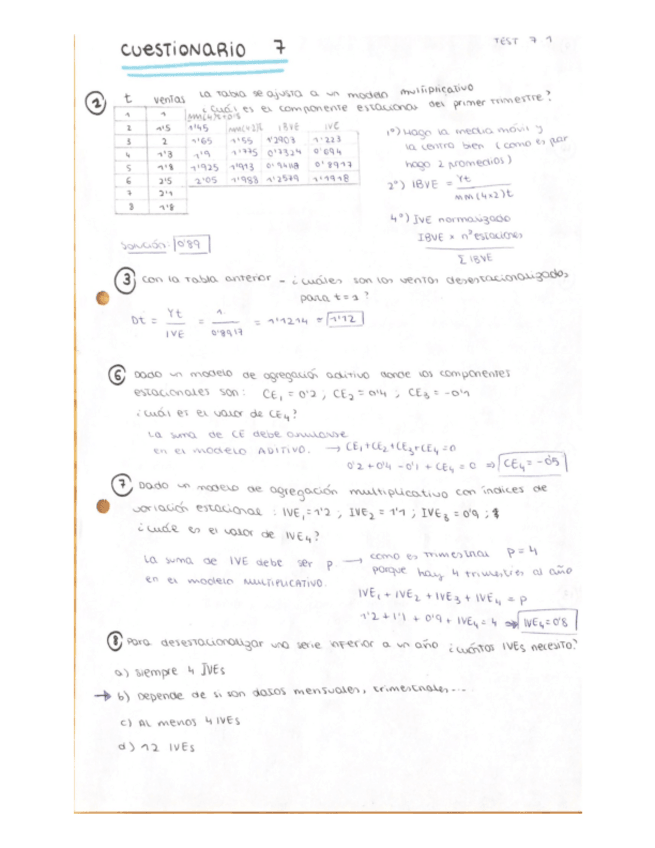 CUESTIONARIO 7
TEST 7 1
② La tabla se ajusta a un modelo multiplicativo
¿Cuál es el componente estacional del primer trimestre?
t ventas MM(4×2)t IBVE IVE
1 1
2 1'5 1'45
3 2 1'65 1'55 1'2903 1'223
4 1'3 1'9 1'775 0'7324 0'694
5 1'8 1'925 1'913 0'9418 0'8917
6 2'5 2'05 1'988 1'2579 1'1918
7 2'1
8 1'8
1º) Hago la media móvil y
la centro bien (como es par
hago 2 promedios)
2º) IBVE = Yt / MM(4×2)t
4º) IVE normalizado
IBVE × nº estaciones / Σ IBVE
Solución: 0'89
③ Con la tabla anterior - ¿cuáles son las ventas desestacionalizadas
para t = 1?
Dt = Yt / IVE = 1 / 0'8917 = 1'1214 = 1'12
⑥ Dado un modelo de agregación aditivo donde los componentes
estacionales son: CE₁ = 0'2 ; CE₂ = 0'4 ; CE₃ = -0'1
¿Cuál es el valor de CE₄?
La suma de CE debe anularse
en el modelo ADITIVO. → CE₁+CE₂+CE₃+CE₄=0
0'2 + 0'4 - 0'1 + CE₄ = 0 ⇒ CE₄ = -0'5
⑦ Dado un modelo de agregación multiplicativo con índices de
variación estacional: IVE₁=1'2 ; IVE₂ = 1'1 ; IVE₃ = 0'9 ;
¿cuál es el valor de IVE₄?
La suma de IVE debe ser p → como es trimestral p = 4
en el modelo MULTIPLICATIVO. porque hay 4 trimestres al año
IVE₁ + IVE₂ + IVE₃ + IVE₄ = p
1'2 + 1'1 + 0'9 + IVE₄ = 4 ⇒ IVE₄ = 0'8
⑧ Para desestacionalizar una serie inferior a un año ¿cuántos IVEs necesito?
a) Siempre 4 IVEs
→ b) Depende de si son datos mensuales, trimestrales...
c) Al menos 4 IVEs
d) 12 IVEs